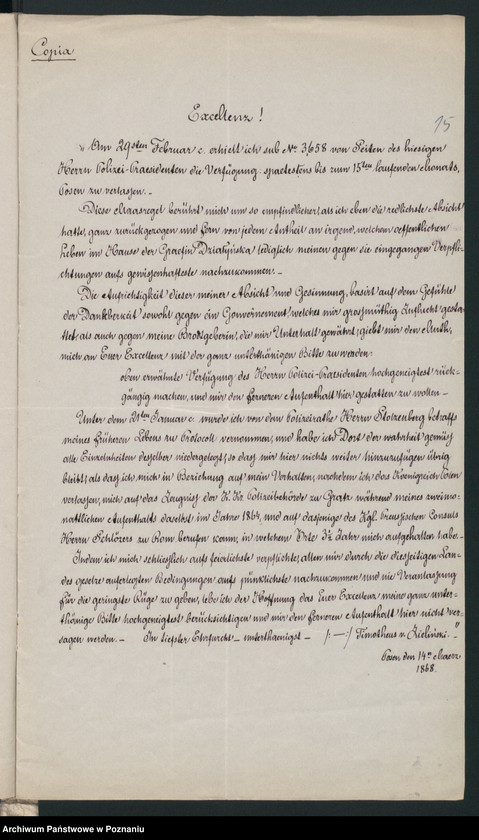 Copia
15
Excellenz!
„Am 29sten Februar c. erhielt ich sub No 3,658 von Seiten des hiesigen
Herrn Polizei-Praesidenten die Verfügung spaetestens bis zum 15ten laufenden Monats,
Posen zu verlassen.-
Diese Maasregel berührt mich um so empfindlicher, als ich eben die redlichste Absicht
hatte, ganz zurückgezogen und fern von jedem Antheil an irgend welchem oeffentlichen
Leben im Hause der Graefin Działyńska lediglich meinen gegen sie eingegangen Verpfli-
chtungen aufs gewissenhafteste nachzukommen.-
Die Aufrichtigkeit dieser meiner Absicht und Gesinnung, basirt auf dem Gefühle
der Dankbarkeit sowohl gegen ein Gouvernement, welches mir grossmüthig Zuflucht gestat-
tet, als auch gegen meine Brodtgeberin, die mir Unterhalt gewährt, giebt mir den Muth,
mich an Euer Excellenz mit der ganz unterthänigen Bitte zu wenden:
oben erwähnte Verfügung des Herrn Polizei-Praesidenten hochgeneigtest rück-
gängig machen, und mir den ferneren Aufenthalt hier gestatten zu wollen-
Unter dem 21ten Januar c. wurde ich von dem Polizeirathe Herrn Stolzenberg betreffs
meines früheren Lebens zu Protocoll vernommen, und habe ich Dort der wahrheit gemäss
alle Einzelnheiten desselben niedergelegt, so dass mir hier nichts weiter hinzuzufügen übrig
bleibt, als dass ich, mich in Beziehung auf mein Verhalten, nachdem ich das Koenigreich Polen
verlassen, mich auf das Zeugniss der K. K. Polizeibehörde zu Gratz während meines zweimo-
nattlichen Aufenthalts daselbst im Jahre 1864, und auf dasjenige des Kgl. Preussischen Consuls
Herrn Schlözers zu Rom berufen kann, in welchem Orte 3½ Jahr mich aufgehalten habe.-
Indem ich mich schliesslich aufs feierlichste verpflichte, allen mir durch die diesseitigen Lan-
des gesetze auferlegten Bedingungen aufs pünktlichste nachzukommen und nie Veranlassung
für die geringste Rüge zu geben, lebe ich der Hoffnung das Euer Excellenz meine ganz unter-
thänige Bitte hochgeneigtest berücksichtigen und mir den ferneren Aufenthalt hier nicht ver-
sagen werden.- In tiefster Ehrfurcht- unterthaenigst- /:-:/ Timotheus v. Zieliński.-"
Posen den 14ten Maerz
1868.
Archiwum Państwowe w Poznaniu